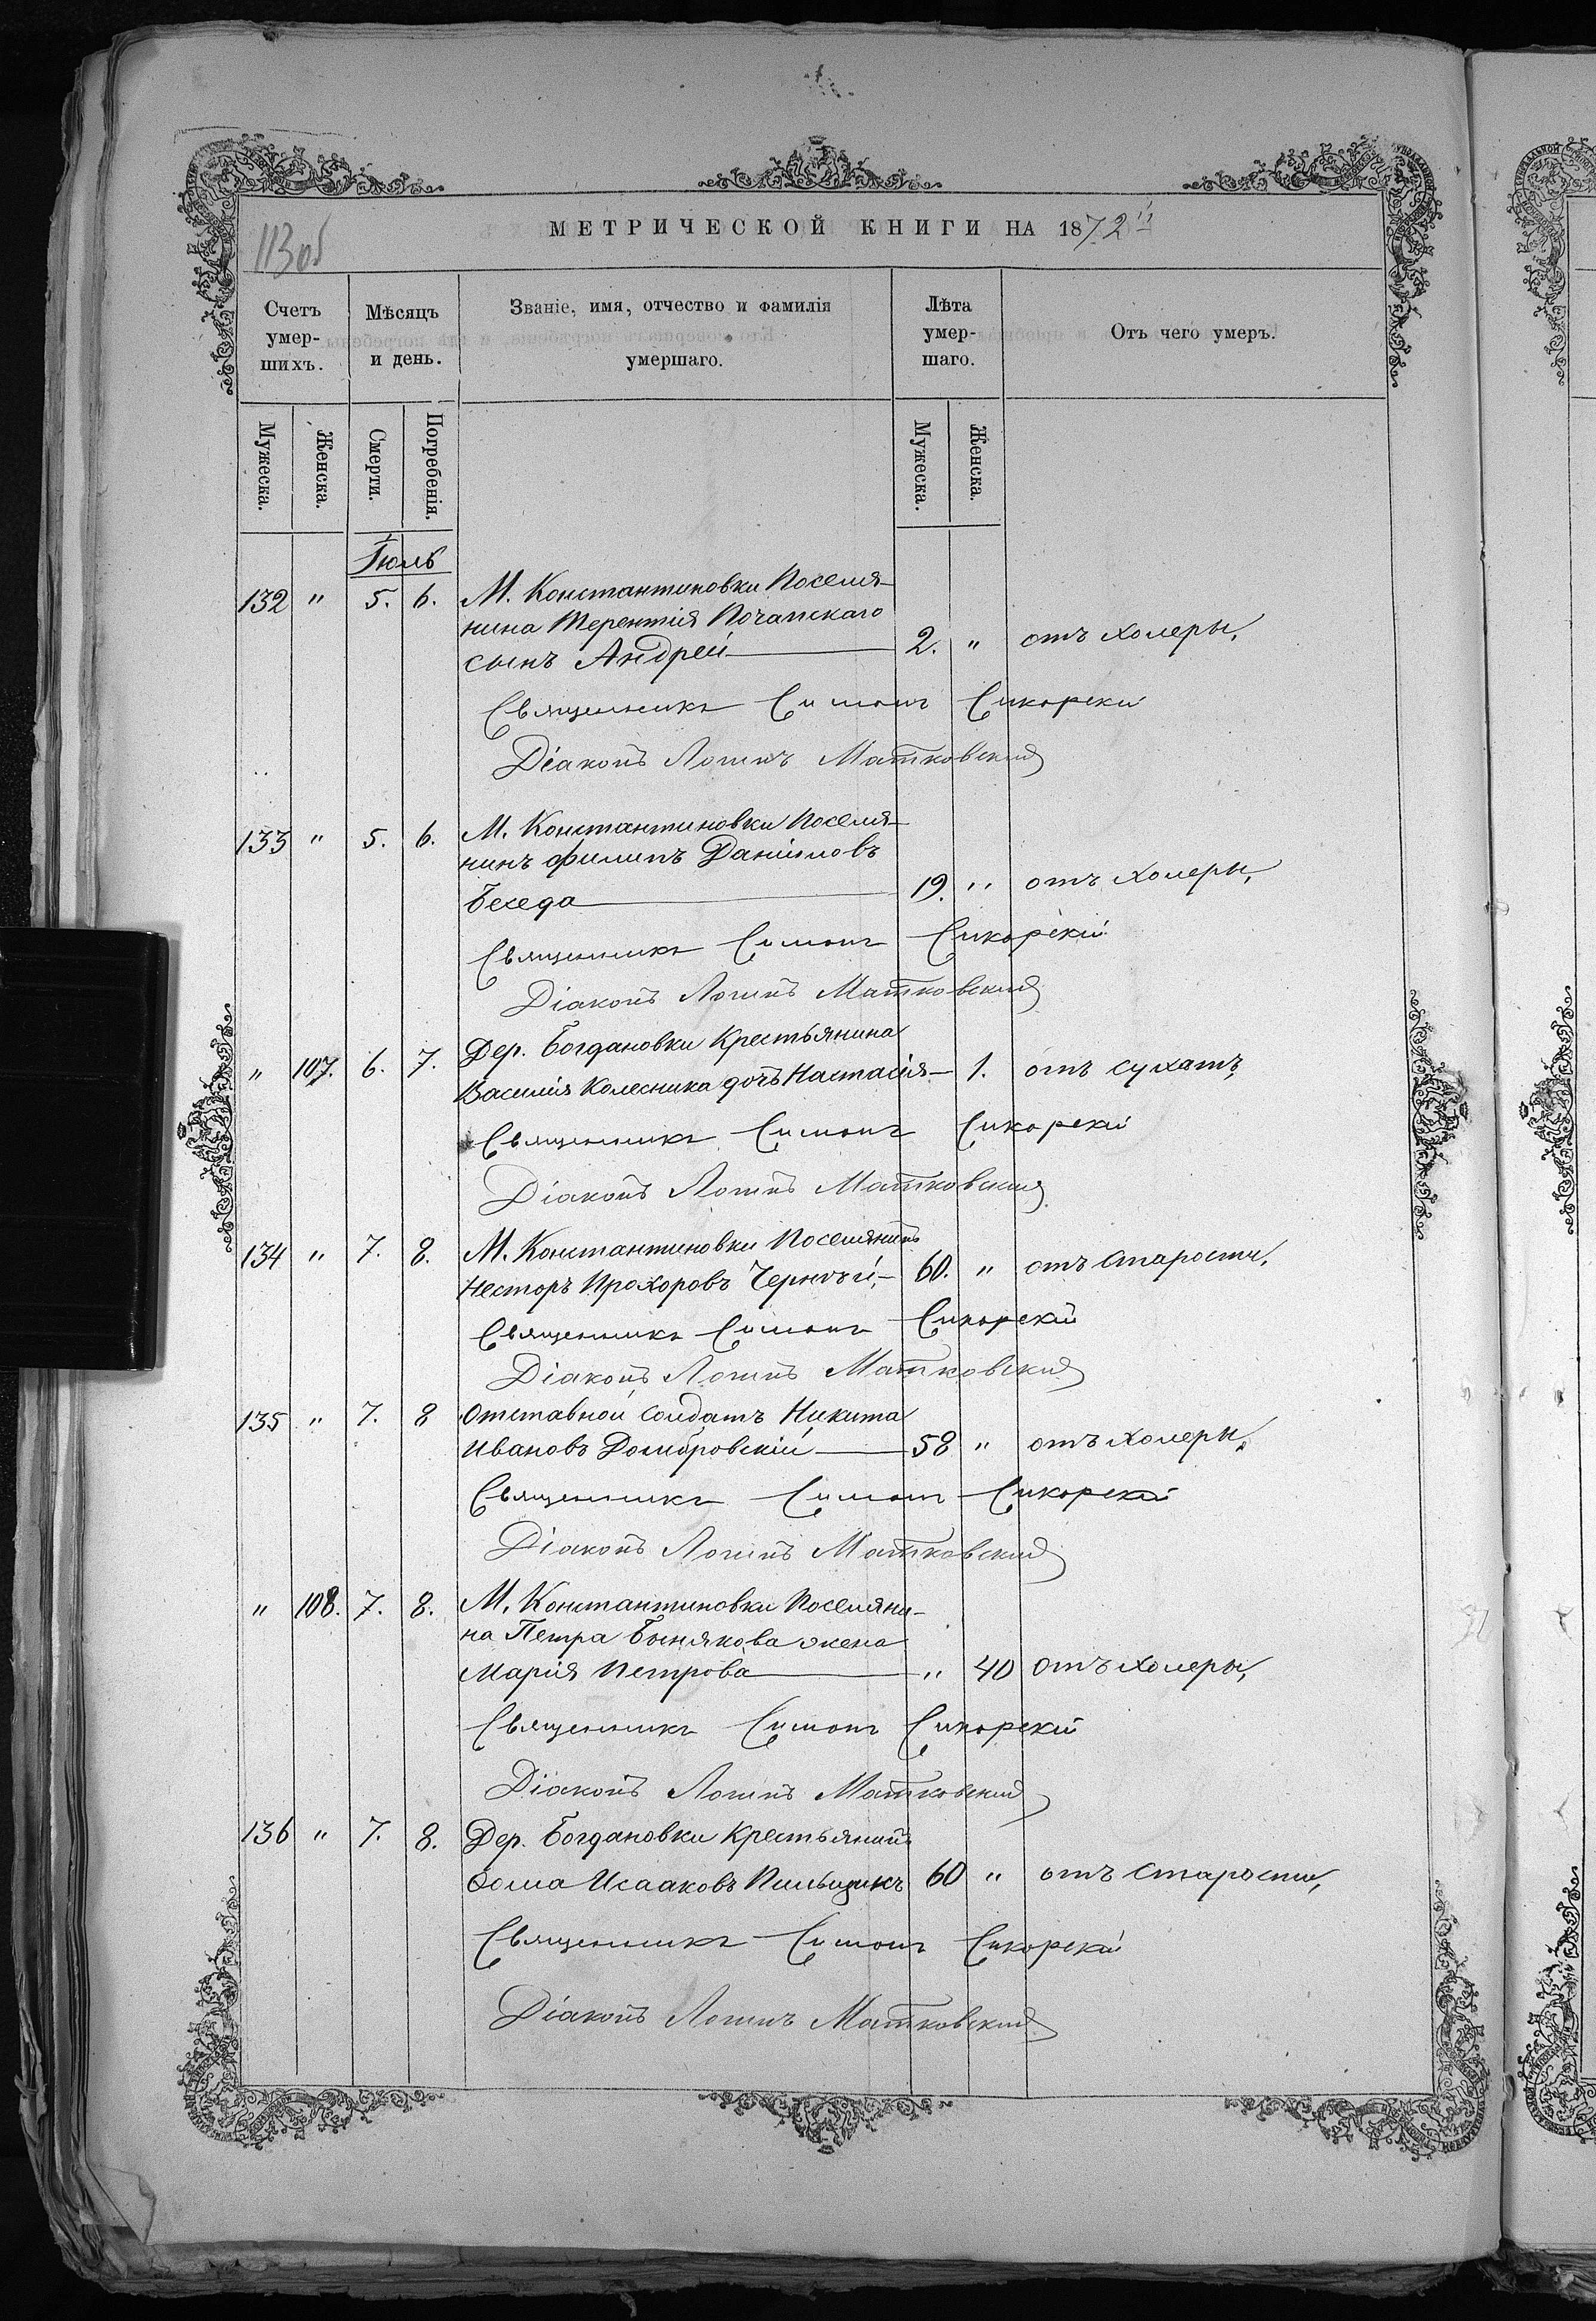 113об
МЕТРИЧЕСКОЙ КНИГИ НА 1872й
Счетъ умер-шихъ.
Мѣсяцъ и день.
Званіе, имя, отчество и фамилія умершаго.
Лѣта умер-шаго.
Отъ чего умеръ.
Мужеска. Женска. Смерти. Погребенія. Мужеска. Женска.
Іюль
132 " 5. 6. М. Константиновки Поселя-
нина Терентія Почапскаго
сынъ Андрей 2. " отъ холеры,
Священникъ Симонъ Сикорскій
Діаконъ Матковскій
133 " 5. 6. М. Константиновки Поселя-
нинъ Филипъ Даніиловъ
Беседа 19. " отъ холеры,
Священникъ Симонъ Сикорскій
Діаконъ Матковскій
" 107. 6. 7. Дер. Богдановки Крестьянина
Василія Колесника дочь Настасія 1. отъ сухатъ,
Священникъ Симонъ Сикорскій
Діаконъ Матковскій
134 " 7. 8. М. Константиновки Поселянинъ
Несторъ Прохоровъ Черный, 60. " отъ старости,
Священникъ Симонъ Сикорскій
Діаконъ Матковскій
135 " 7. 8 Отставной солдатъ Никита
Ивановъ Домбровскій 58 " отъ холеры,
Священникъ Симонъ Сикорскій
Діаконъ Матковскій
" 108. 7. 8. М. Константиновки Поселяни-
на Петра Бынякова жена
Марія Петрова " 40 отъ холеры,
Священникъ Симонъ Сикорскій
Діаконъ Матковскій
136 " 7. 8. Дер. Богдановки Крестьянинъ
Ѳома Исааковъ Пильщикъ 60 " отъ старости,
Священникъ Симонъ Сикорскій
Діаконъ Матковскій